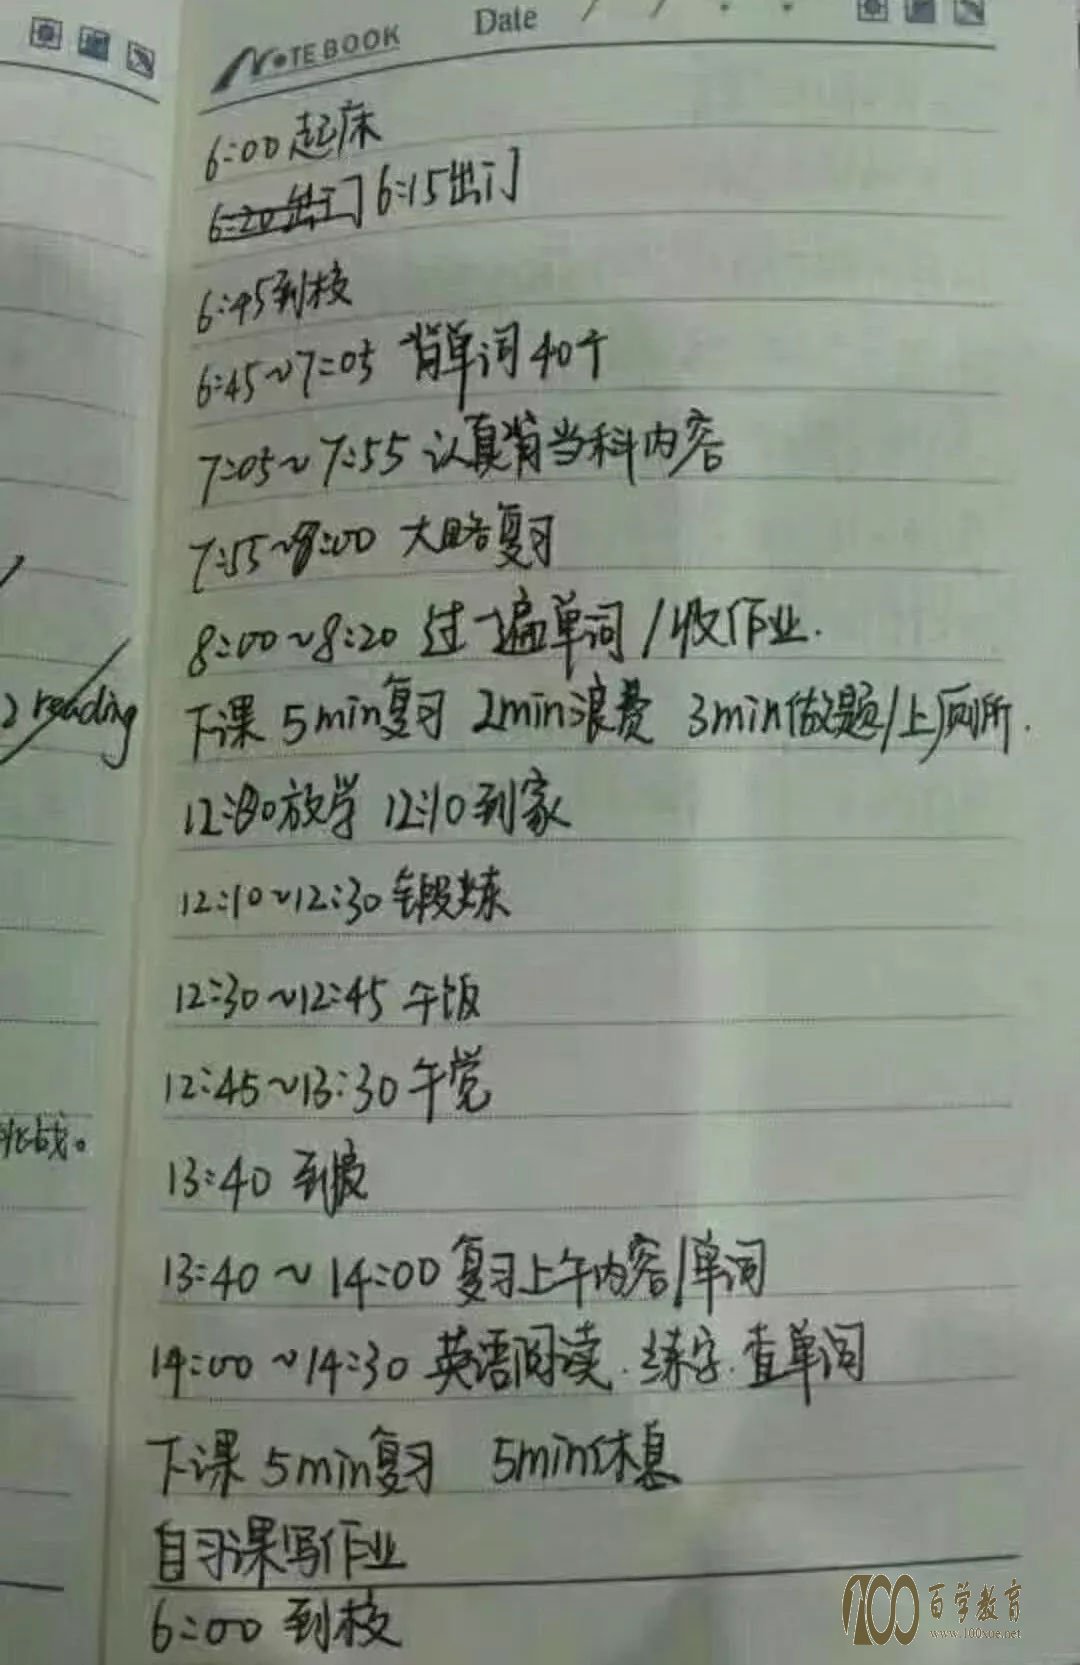 NOTEBOOK
Date / / . .
6:00 起床
6:20 出门 6:15出门
6:45到校
6:45~7:05 背单词40个
7:05~7:55 认真背当科内容
7:55~8:00 大略复习
8:00~8:20 过一遍单词/收作业.
2 reading
下课 5min复习 2min浪费 3min做题/上厕所.
12:00放学 12:10到家
12:10~12:30 锻炼
12:30~12:45 午饭
12:45~13:30 午觉
挑战。
13:40 到校
13:40~14:00 复习上午内容/单词
14:00~14:30 英语阅读.练字.查单词
下课 5min复习 5min休息
自习课写作业
6:00 到校
100 百学教育
www.100xue.net